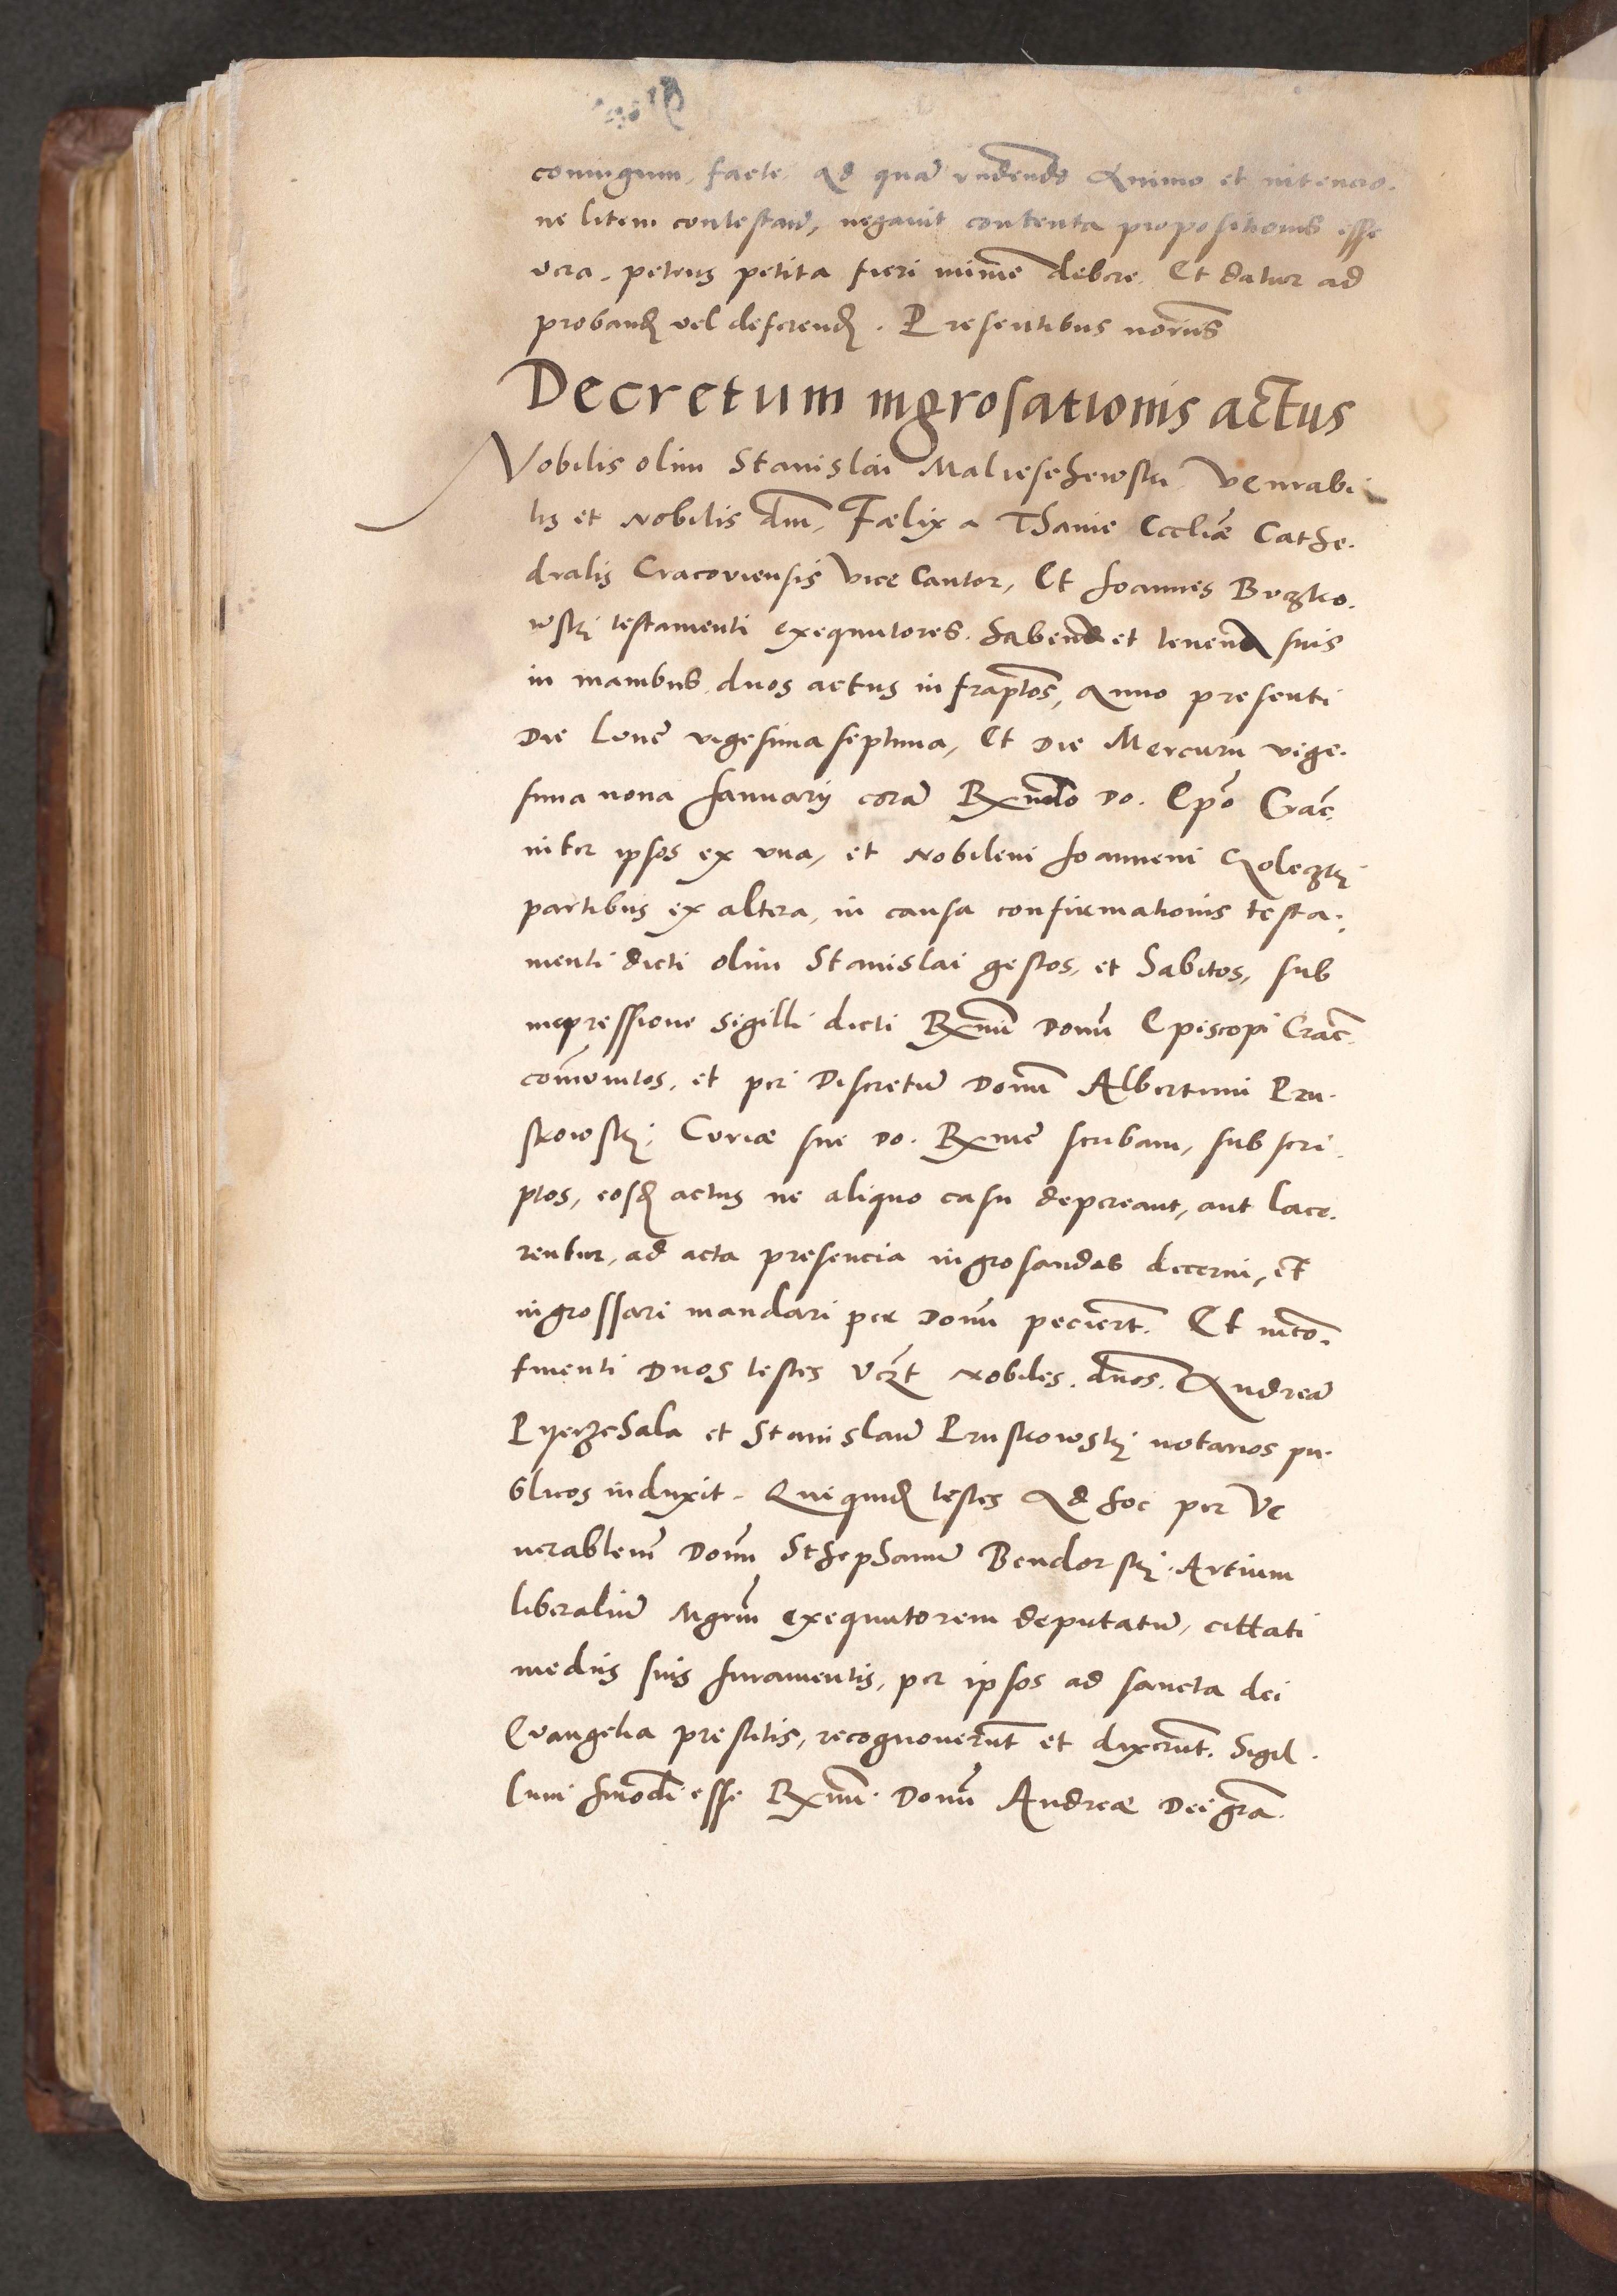 coniugum, facte. Ad quã rñdendo Animo et intencio.
ne litem contestand, negavit contenta propositionis esse
vera. petens petita fieri minime debere. Et datur ad
proband vel deferend. Presentibus
Decretum ingrosationis actus
Nobilis olim Stanislai Venerabi
lis et Nobilis dñi, Fælix a Thanie Eccliæ Cathe.
dralis Cracoviensis Vice Cantor, Et Joannes Buczko.
wski testamenti exequutores. habend et tenend suis
in manibus duos actus infraptos, Anno presenti
Die Lune vigesima septima, Et Die Mercurii vige.
sima nona Januarij corã Rxmdo Do. Epõ Crac.
inter ipsos ex una, et Nobilem Joannem
partibus ex altera, in causa confirmationis testa.
menti dicti olim Stanislai gestos, et habitos, sub
impressione sigilli dicti Rxmi Domi Episcopi Crac.
comunitos, et per Discretũ Domi Albertum Pru.
skowski Curiæ sue Do. Rxme scribam, subscri.
ptos, eosd actus ne aliquo casu depereant, aut lace.
rentur, ad acta presencia ingrosandos decerni, et
ingrossari mandari per Domi peciert. Et
duos testes Vczt Nobiles. dños. Andreã
et Stanislaũ Pruskowski notarios pu.
blicos induxit. Qui quid testes Ad hoc per Ve
nerablem Domi Sthephanũ Bendorski Artium
liberaliũ Mgrm exequutorem deputatũ, cittati
mediis suis Juramentis, per ipsos ad sancta dei
Evangelia prestitis, recognoverũt et dixerũt. Sigil.
lum hmodi esse Rxmi Domi Andreæ Dei grã.